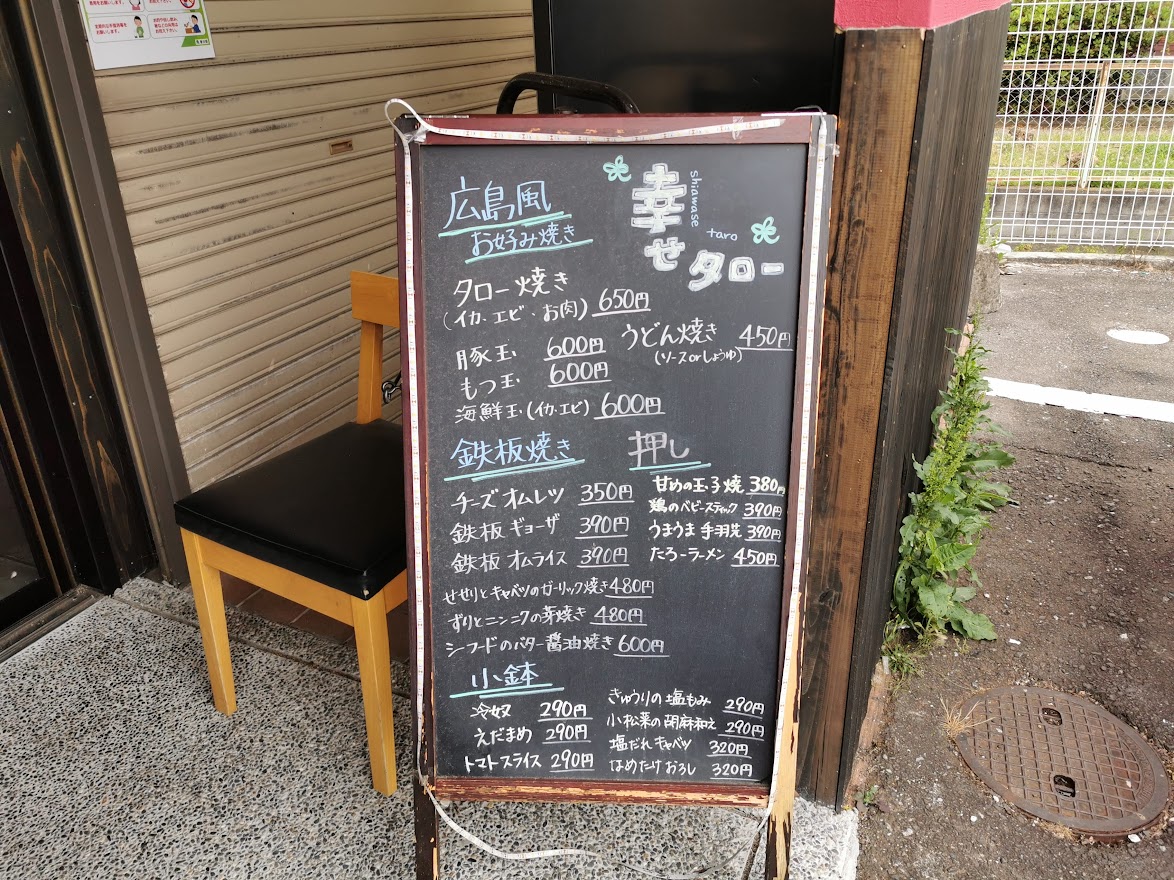 広島風
お好み焼き
幸せタロー
shiawase
taro
タロー焼き
(イカ・エビ・お肉) 650円
豚玉 600円
もつ玉 600円
海鮮玉(イカ・エビ) 600円
うどん焼き 450円
(ソースorしょうゆ)
鉄板焼き
チーズオムレツ 350円
鉄板ギョーザ 390円
鉄板オムライス 390円
せせりとキャベツのガーリック焼き 480円
ずりとニンニクの芽焼き 480円
シーフードのバター醤油焼き 600円
押し
甘めの玉子焼 380円
鶏のベビースティック 390円
うまうま手羽先 390円
たろーラーメン 450円
小鉢
冷奴 290円
えだまめ 290円
トマトスライス 290円
きゅうりの塩もみ 290円
小松菜の胡麻和え 290円
塩だれキャベツ 320円
なめたけおろし 320円